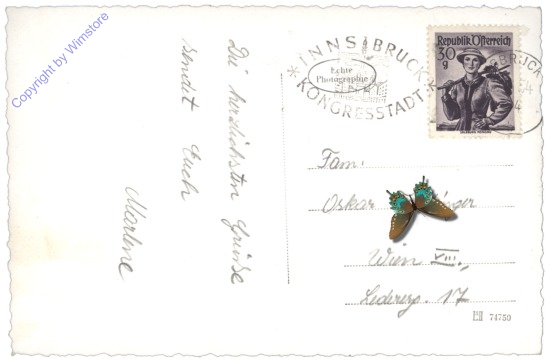 Copyright by Wimstore
Die herzlichsten Grüsse
sendet Euch
Marlene
INNSBRUCK
Echte
Photographie
KONGRESSTADT
Republik Österreich
30
g
Fam.
Oskar
Wien VIII.,
Lederерg. 17
74750